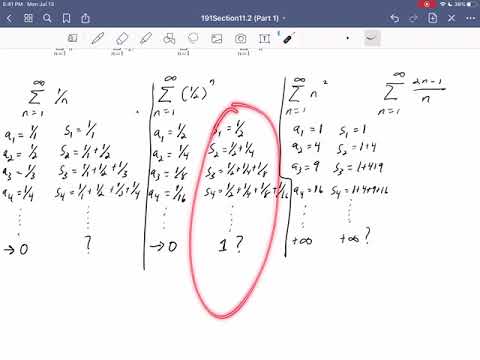 5:41 PM Mon Jul 13
86%
191Section11.2 (Part 1)
∞ ∑ n=1 1/n
∞ ∑ n=1 (1/2)^n
∞ ∑ n=1 n²
∞ ∑ n=1 (2n-1)/n
a₁=1/1 S₁=1/1
a₂=1/2 S₂=1/1+1/2
a₃=1/3 S₃=1/1+1/2+1/3
a₄=1/4 S₄=1/1+1/2+1/3+1/4
→0 ?
a₁=1/2 S₁=1/2
a₂=1/4 S₂=1/2+1/4
a₃=1/8 S₃=1/2+1/4+1/8
a₄=1/16 S₄=1/2+1/4+1/8+1/16
→0 1?
a₁=1 S₁=1
a₂=4 S₂=1+4
a₃=9 S₃=1+4+9
a₄=16 S₄=1+4+9+16
+∞ +∞?